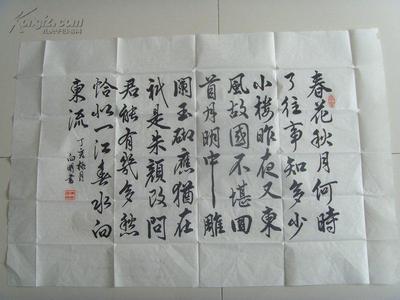 春花秋月何時
了往事知多少
小樓昨夜又東
風故國不堪回
首月明中雕
闌玉砌應猶在
祇是朱顏改問
君能有幾多愁
恰似一江春水向
東流
丁亥
Kongfz.com